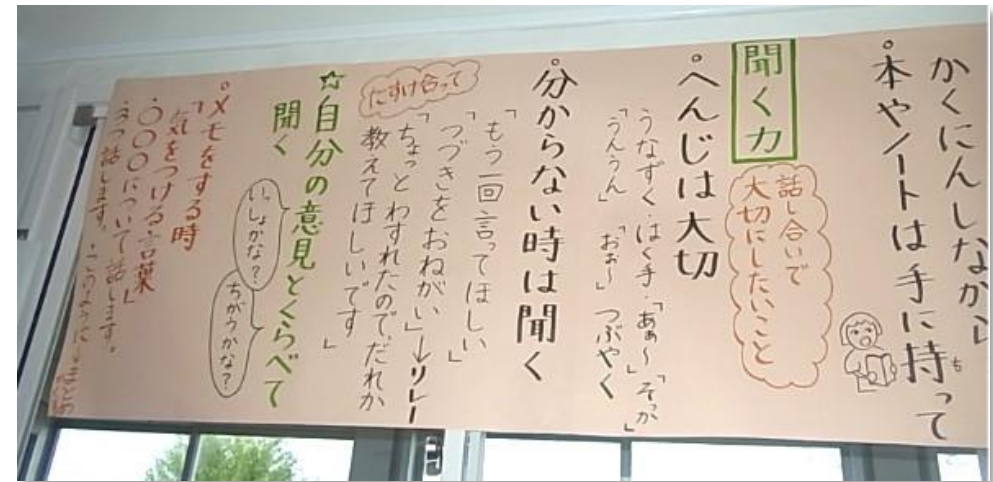 かくにんしながら
。本やノートは手に持って
も
聞く力
話し合いで
大切にしたいこと
。へんじは大切
うなずく・はく手・「あぁ〜」「そっか」
「うんうん」「おぉ〜」つぶやく
。分からない時は聞く
「もう一回言ってほしい」
「つづきをおねがい」→リレー
「ちょっとわすれたので、だれか
教えてほしいです」
たすけ合って
☆自分の意見とくらべて
聞く
いっしょかな?
ちがうかな?
。メモをする時
「気をつける言葉
・〇〇〇について話します。
・3つ話します。